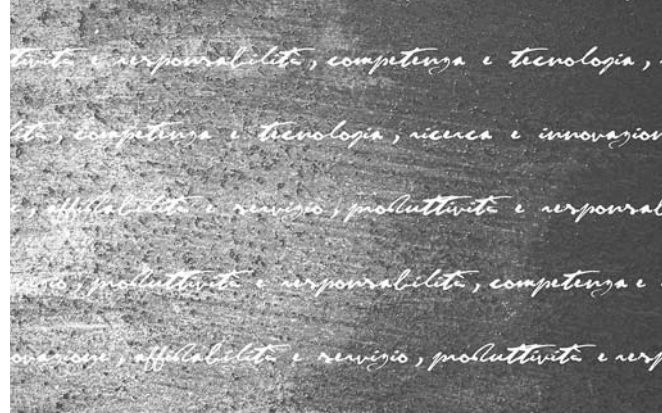 tività e responsabilità, competenza e tecnologia,
lità, competenza e tecnologia, ricerca e innovazion
, affidabilità e servizio, produttività e responsabil
vizio, produttività e responsabilità, competenza e
ovazione, affidabilità e servizio, produttività e resp